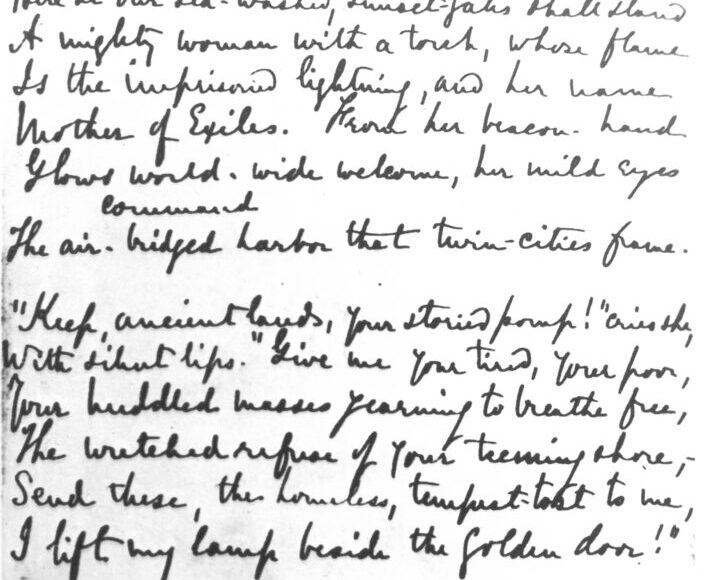 Here at our sea-washed, sunset-gates shall stand
A mighty woman with a torch, whose flame
Is the imprisoned lightning, and her name
Mother of Exiles. From her beacon-hand
Glows world-wide welcome, her mild eyes
command
The air-bridged harbor that twin-cities frame.
"Keep, ancient lands, your storied pomp!" cries she,
With silent lips. "Give me your tired, your poor,
Your huddled masses yearning to breathe free,
The wretched refuse of your teeming shore,-
Send these, the homeless, tempest-tost to me,
I lift my lamp beside the golden door!"